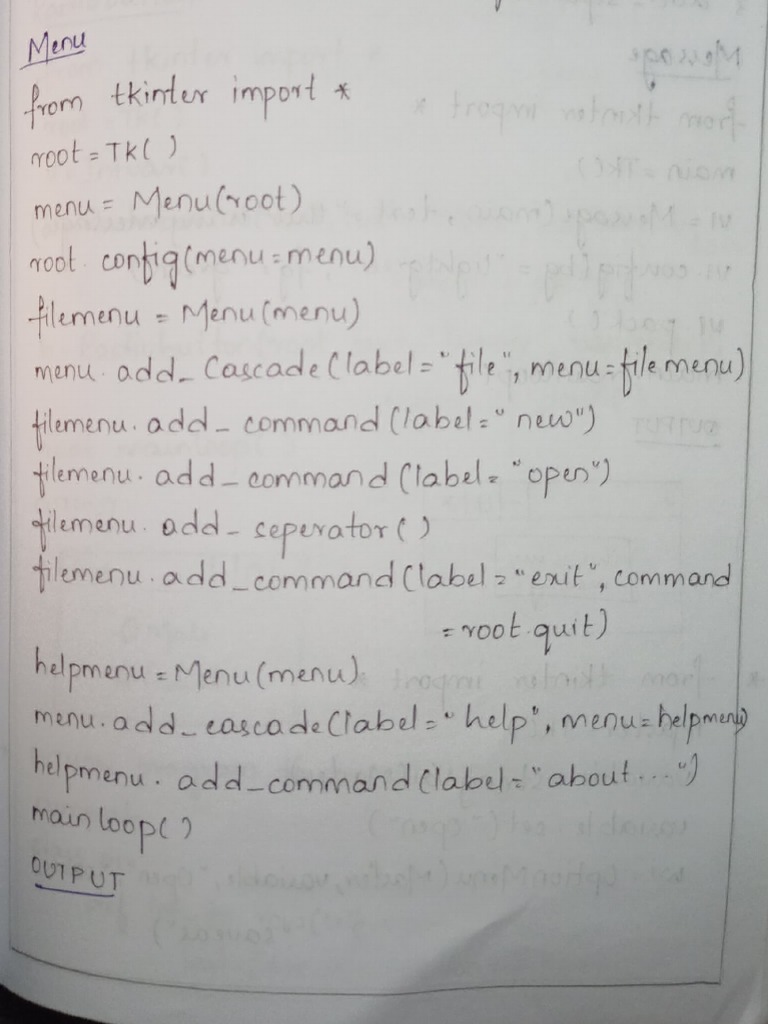 Menu
from tkinter import *
root = TK( )
menu = Menu(root)
root. config(menu=menu)
filemenu = Menu(menu)
menu. add_ Cascade(label="file", menu=filemenu)
filemenu. add_ command(label="new")
filemenu. add_command(label="open")
filemenu. add_ seperator( )
filemenu. add_command(label="exit", command
=root.quit)
helpmenu = Menu(menu)
menu. add_cascade(label="help", menu=helpmenu)
helpmenu. add_command(label="about...")
mainloop( )
OUTPUT